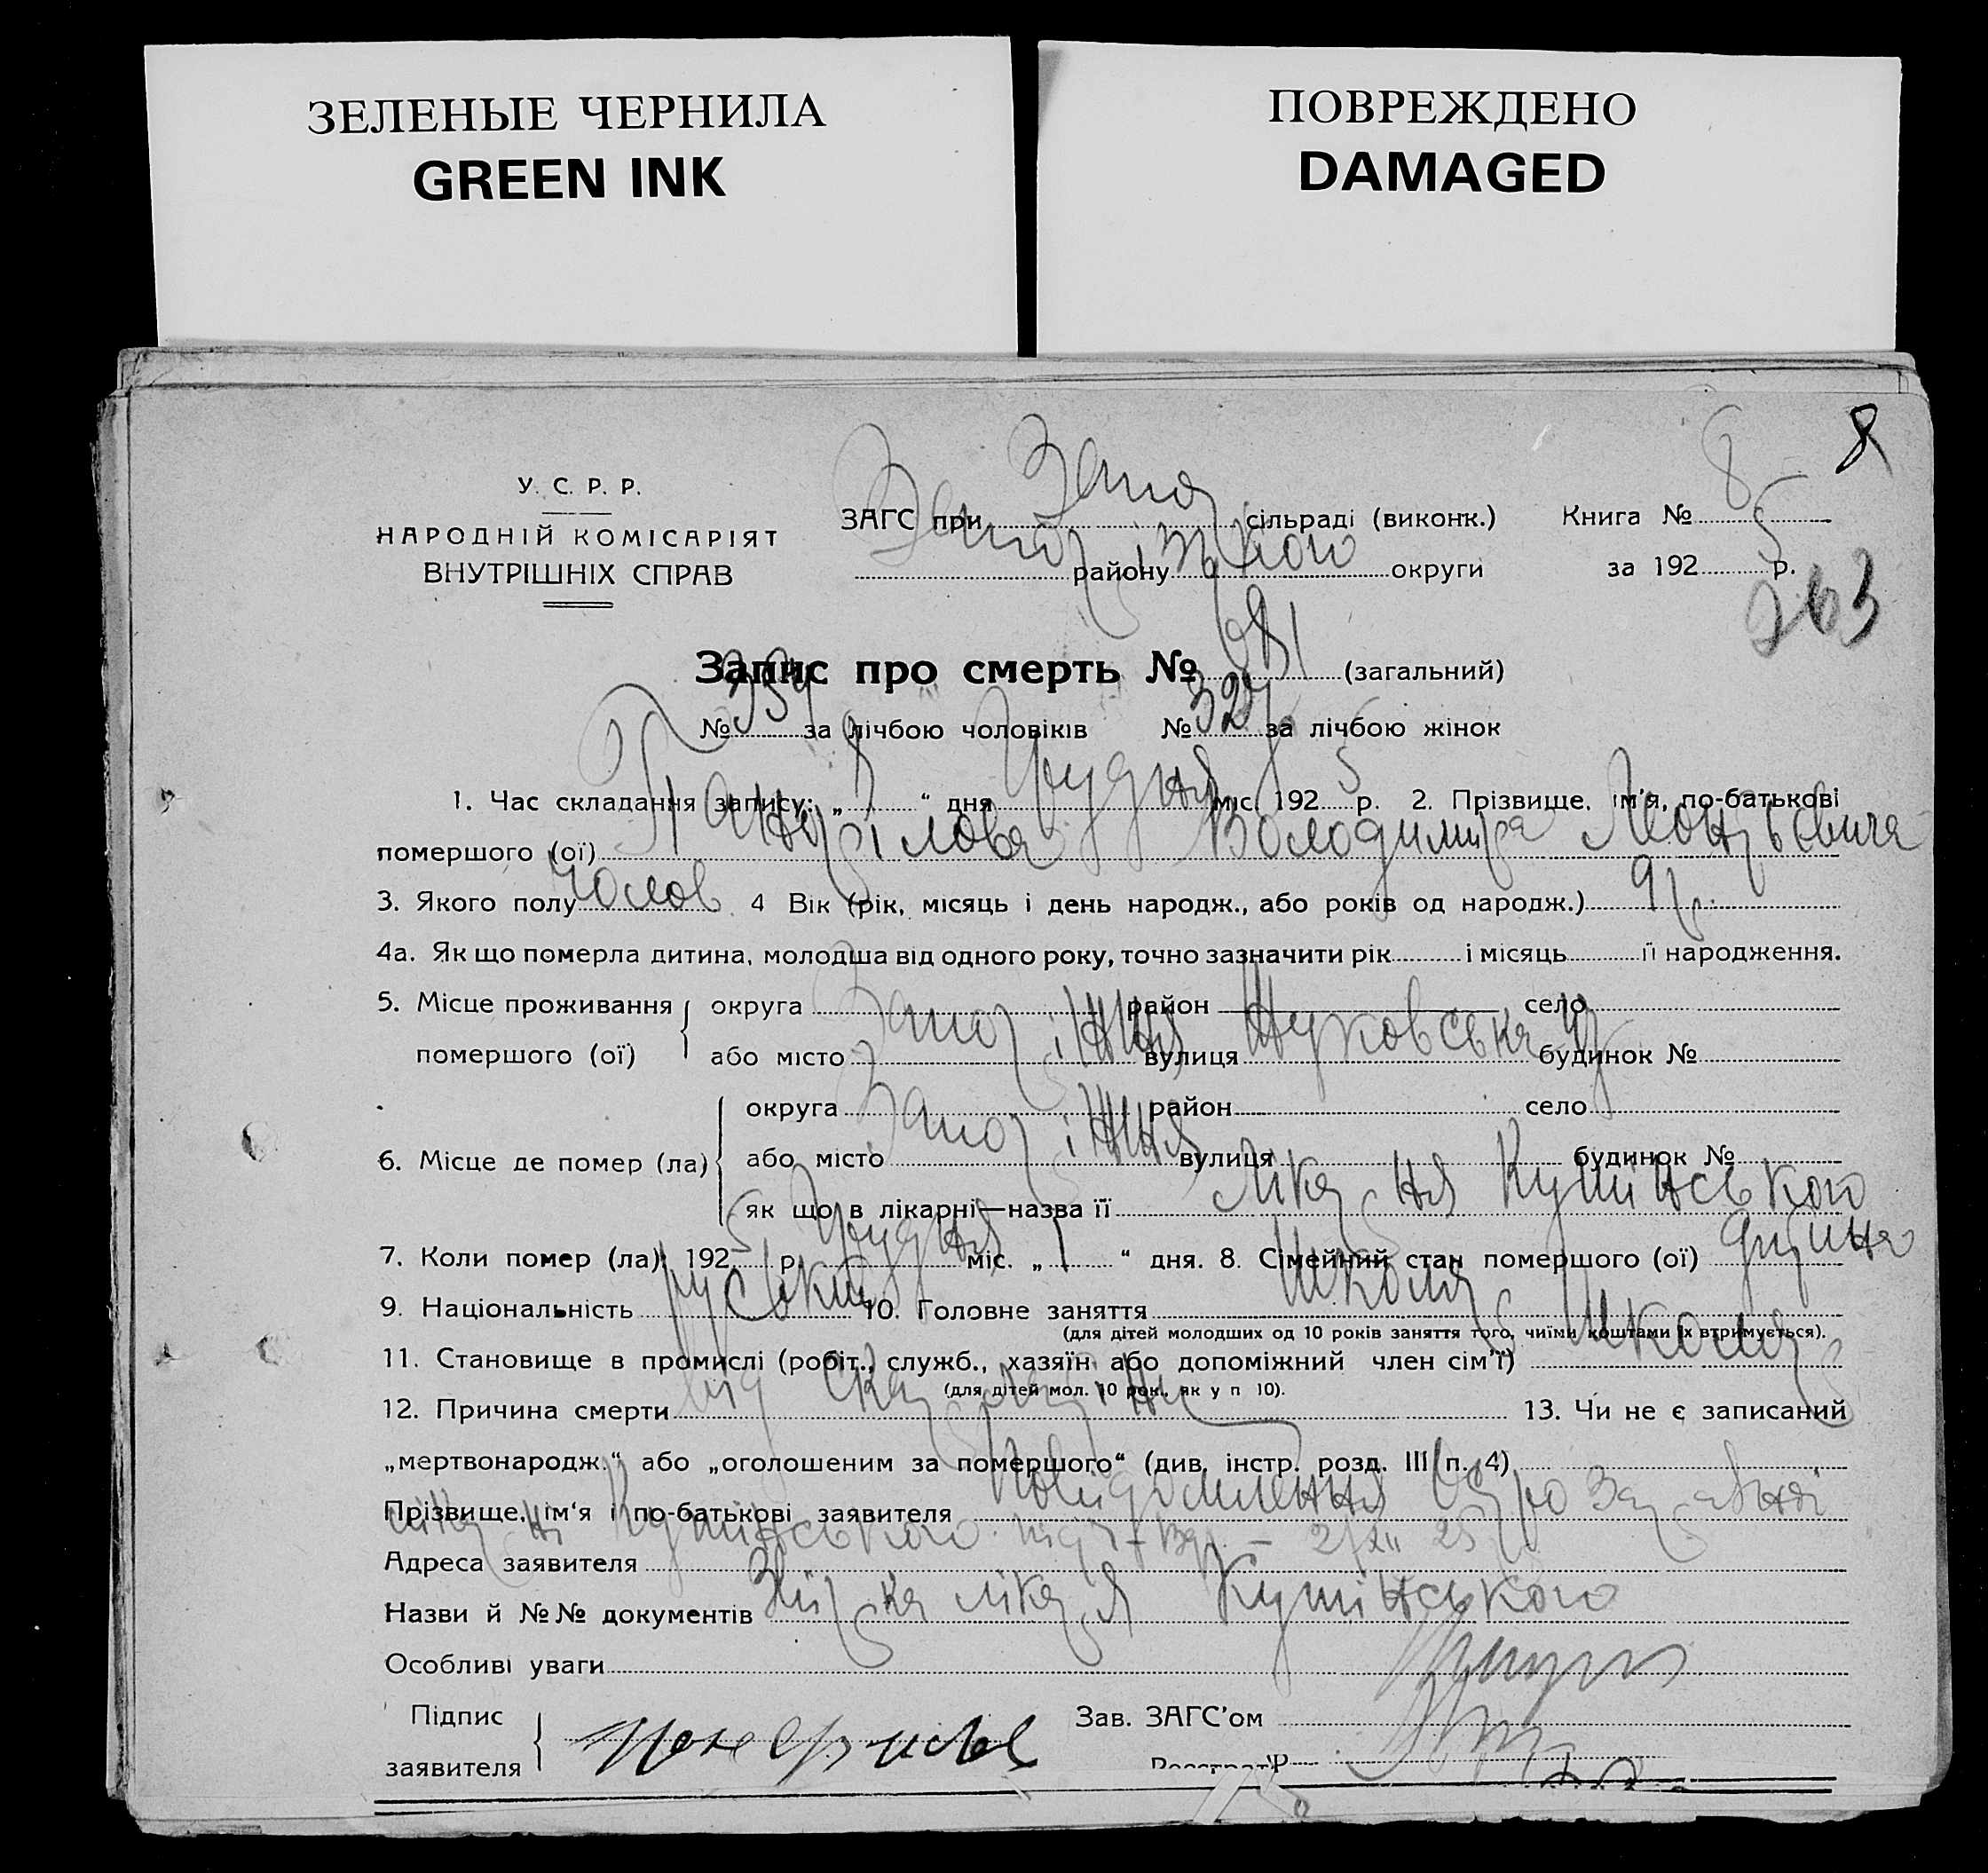 ЗЕЛЕНЫЕ ЧЕРНИЛА
GREEN INK
ПОВРЕЖДЕНО
DAMAGED
8
У. С. Р. Р.
НАРОДНІЙ КОМІСАРІЯТ
ВНУТРІШНІХ СПРАВ
ЗАГС при Запор сільраді (виконк.) Книга № 8
району Запорізького округи за 192 5 р.
263
Запис про смерть № 681 (загальний)
№ 354 за лічбою чоловіків № 327 за лічбою жінок
1. Час складання запису: „ 8 “ дня Грудня міс. 192 5 р. 2. Прізвище, ім'я, по-батькові
помершого (ої) Володимира
3. Якого полу Чолов 4 Вік (рік, місяць і день народж., або років од народж.) 9 р.
4а. Як що померла дитина, молодша від одного року, точно зазначити рік і місяць її народження.
5. Місце проживання округа район село
помершого (ої) або місто Запоріжжя вулиця Жуковська будинок №
6. Місце де помер (ла) округа район село
або місто Запоріжжя вулиця будинок №
як що в лікарні—назва її лікарня
7. Коли помер (ла): 192 5 р. Грудня міс. „ 1 “ дня. 8. Сімейний стан помершого (ої) дитина
9. Національність руський 10. Головне заняття школяр
(для дітей молодших од 10 років заняття того, чиїми коштами їх втримується).
11. Становище в промислі (робіт., служб., хазяїн або допоміжний член сім'ї) школяр
(для дітей мол. 10 рок., як у п 10).
12. Причина смерти від скарлатіни 13. Чи не є записаний
„мертвонародж.“ або „оголошеним за помершого“ (див. інстр. розд. III п. 4)
Прізвище, ім‘я і по-батькові заявителя Повідомлення
Адреса заявителя
Назви й №№ документів лікаря
Особливі уваги
Підпис
заявителя
Зав. ЗАГС'ом